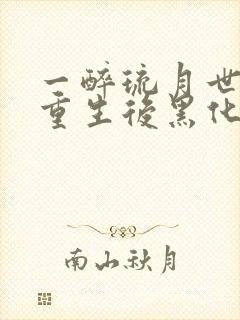 一醉琉月世
重生後黑化
南山秋月